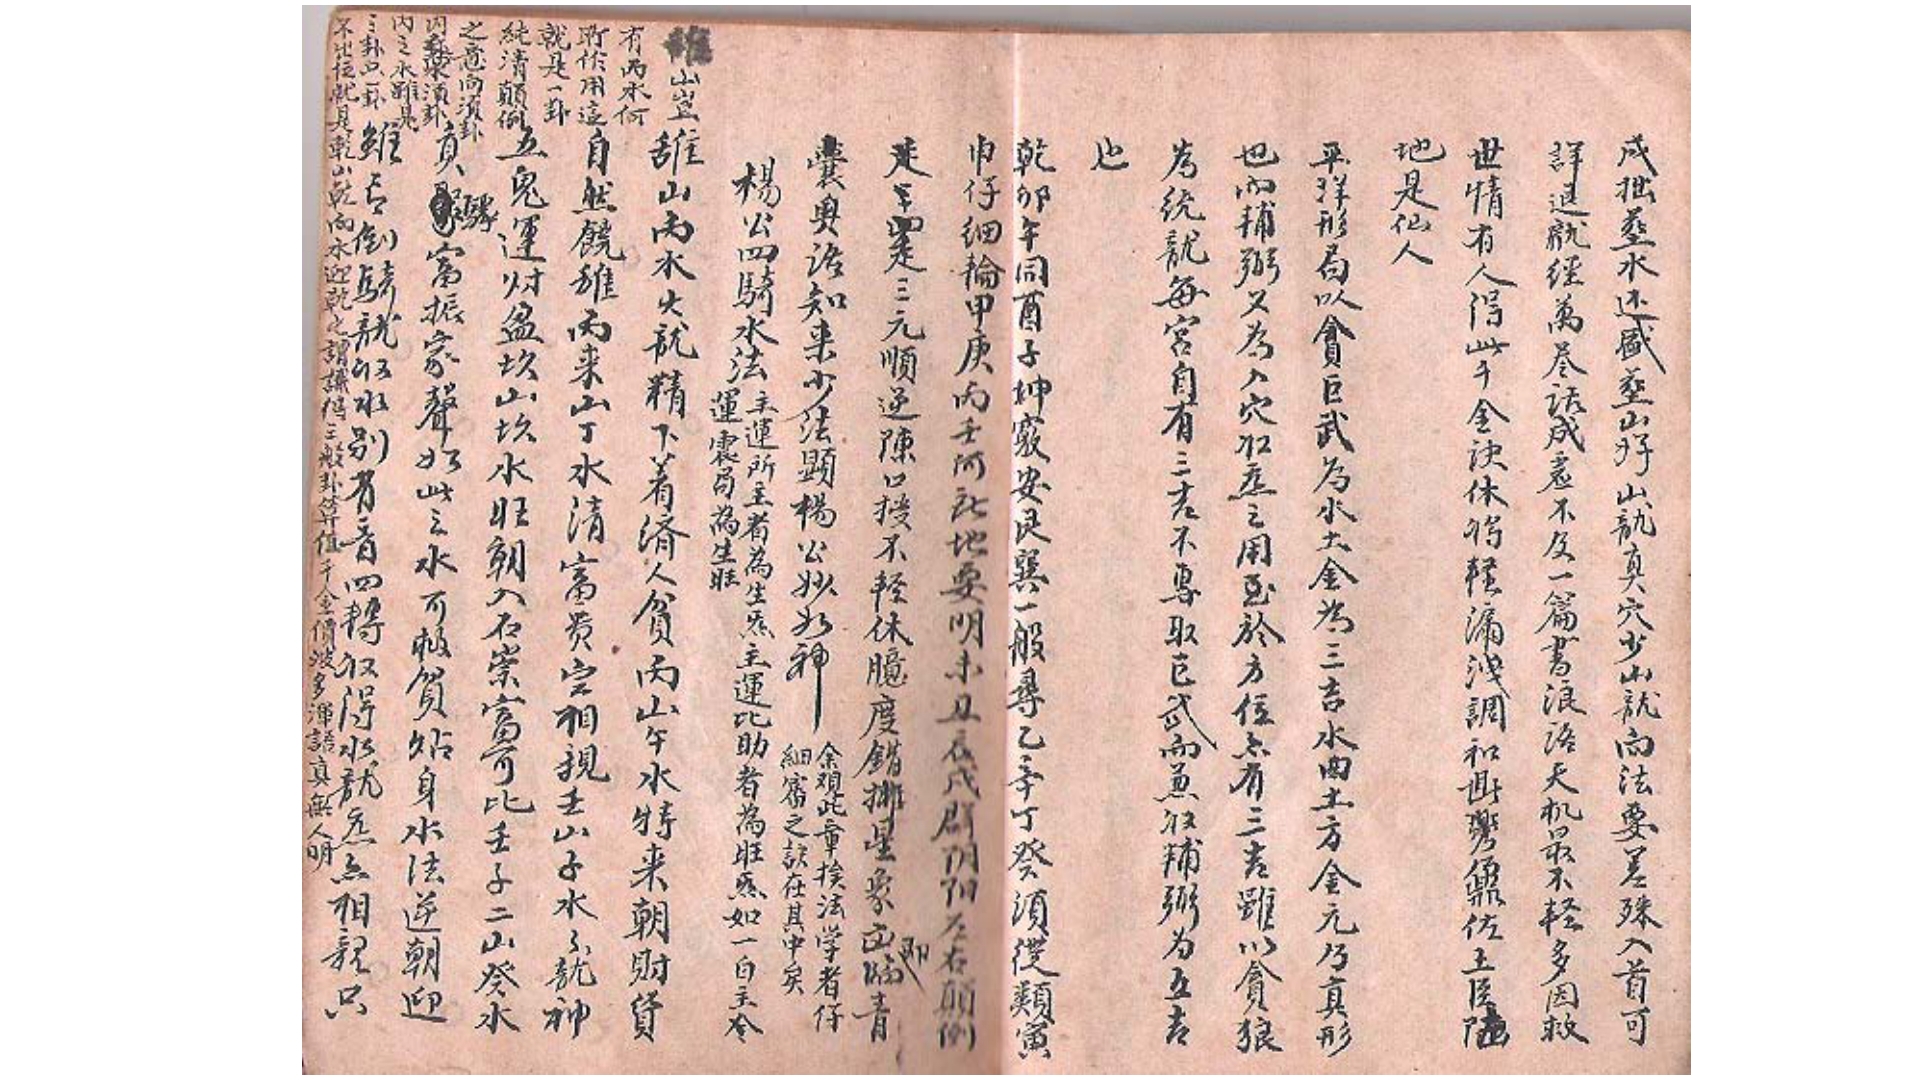 成拙葬水还盛葬山好山龍真穴少山龍向法要差殊入首可
詳退龍經萬卷話成虛不及一篇書浪語天机最不輕多因救
世情有人得此千金訣休將輕漏洩調和鼎佐王臣
地是仙人
平洋形局以貪巨武为水土金為三吉水曲土方金元乃真形
也而輔弼又為入穴收氣之用至於方位亦有三吉雖以貪狼
為統龍每宮自有三吉不專取巨武而兼收輔弼为五吉
也
乾卯午同酉子坤竅安艮巽一般尋乙辛丁癸須從類寅
申仔細輪甲庚丙壬河訖地要明未丑辰戌辟阴阳左右顛倒
走三元順逆陳口授不輕休臆度錯排星象即青
囊奧语知来少法顯楊公妙如神
余观此章挨法学者仔
細審之訣在其中矣
楊公四騎水法
主運所主者為生氣主運比助者為旺氣如一白主令
運震局為生旺
離山丙水火龍精下着済人貧丙山午水特来朝財貸
自然饒離丙来山丁水清富貴定相親壬山子水龍神
五鬼運财盈坎山坎水旺朝入石崇富可比壬子二山癸水
真驛富振家聲如此之水可極貧站身水法逆朝迎
雖言倒騎龍收水別有音四轉收得水龍氣亦相親只
離山豈
有丙水何
所作用這
就是一卦
純清顛倒
之意向須卦
内乘須卦
内之水雖是
三卦只一卦
不出位就是乾山乾向水迎乾之謂識得三般卦算值千金價波多渾語真無人明